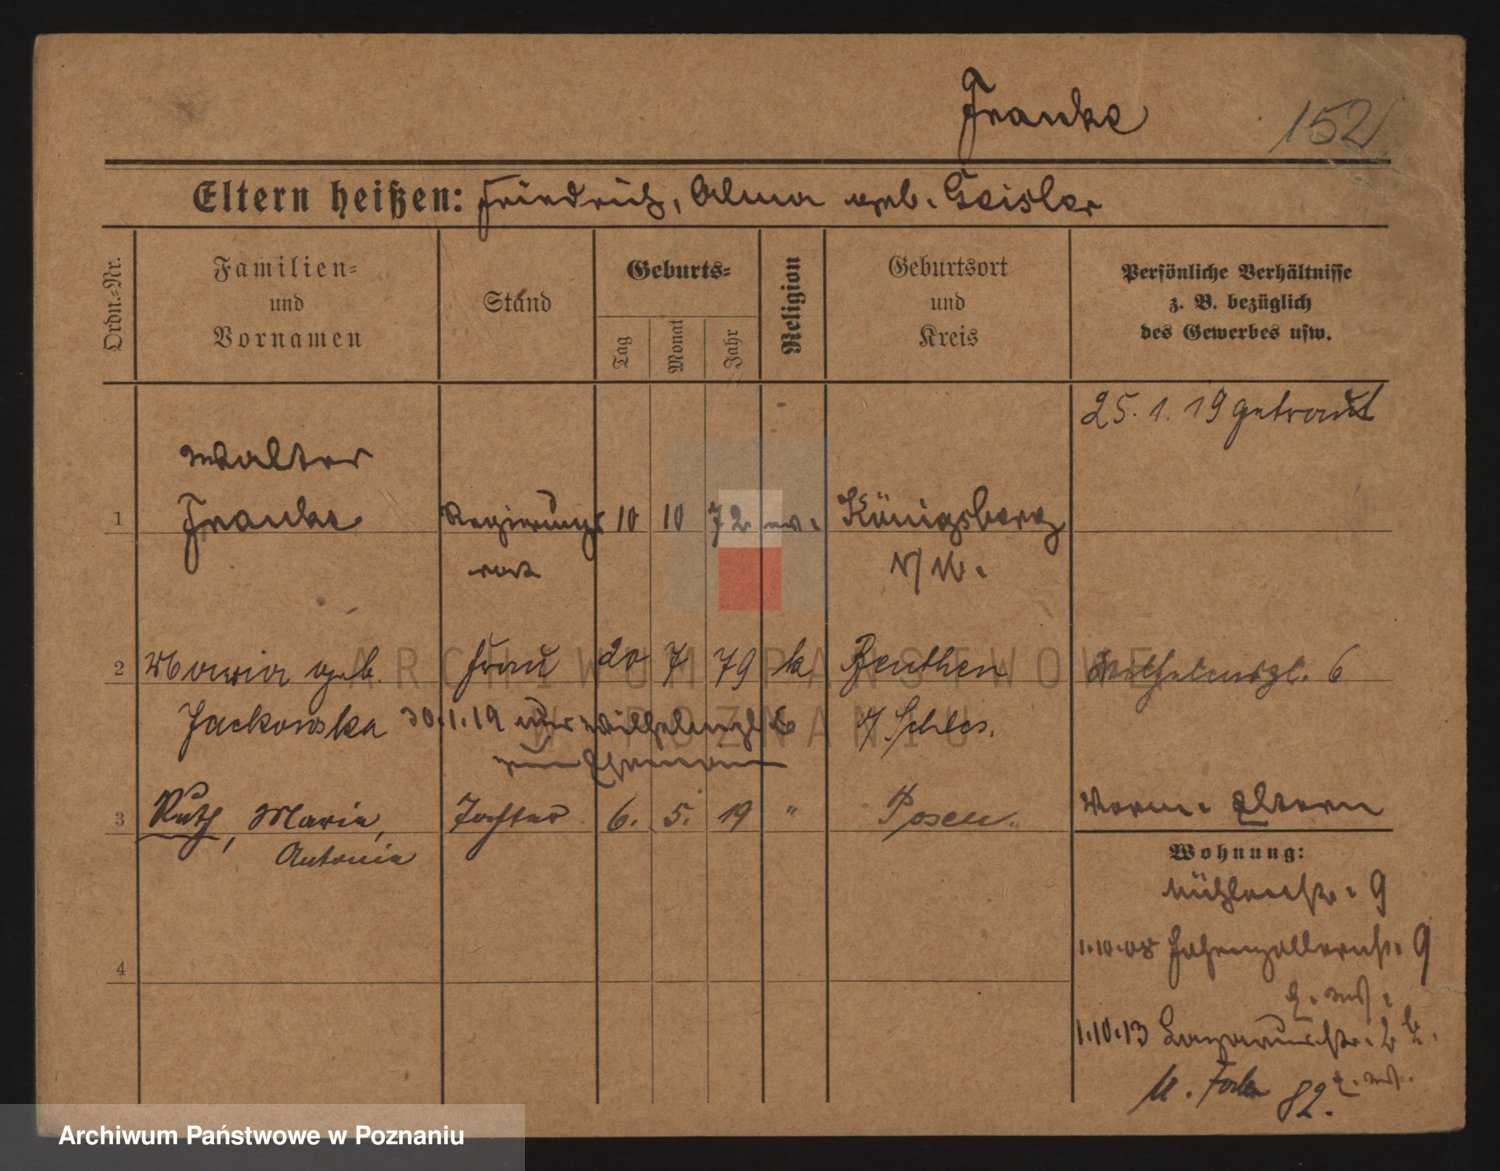 Franke
152
Eltern heißen: Friedrich, Alma geb. Geisler
Ordn.=Nr.
Familien=
und
Vornamen
Stand
Geburts=
Tag
Monat
Jahr
Religion
Geburtsort
und
Kreis
Persönliche Verhältnisse
z. B. bezüglich
des Gewerbes usw.
25. 1. 19 getraut
Walter
1 Franke Regierungs 10 10 72 ev. Königsberg
rat N/M.
2 Maria geb. Frau 20 7 79 k. Beuthen Wilhelmspl. 6
Jackowska 30.1.19 Wilhelmspl. 6 O/Schles.
zum Ehemann
3 Ruth, Maria, Tochter 6. 5. 19 " Posen Verm. Eltern
Antonie
Wohnung:
Mühlenstr. 9
4
1.10.08 Hohenzollernstr. 9
1.10.13 Lazarusstr. 2 b.
82.
ARCHIWUM PAŃSTWOWE
W POZNANIU
Archiwum Państwowe w Poznaniu